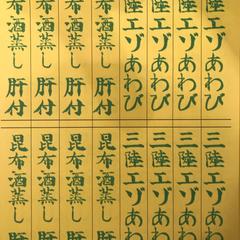 陸エゾあわび
陸エゾあわび
陸エゾあわび
陸エゾあわび
布酒蒸し 肝付
布酒蒸し 肝付
布酒蒸し 肝付
布酒蒸し 肝付
三陸エゾあわ
三陸エゾあわ
三陸エゾあわ
三陸エゾあわ
昆布酒蒸し
昆布酒蒸し
昆布酒蒸し
昆布酒蒸し